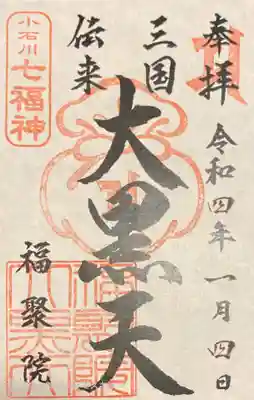 奉拝
令和四年一月四日
三国
伝来
大黒天
小石川
七福神
福聚院